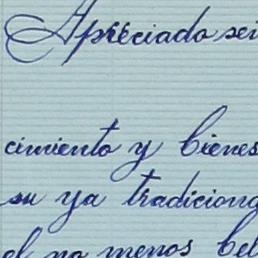 Apreciado señ
cimiento y bienes
su ya tradiciona
el no menos bel